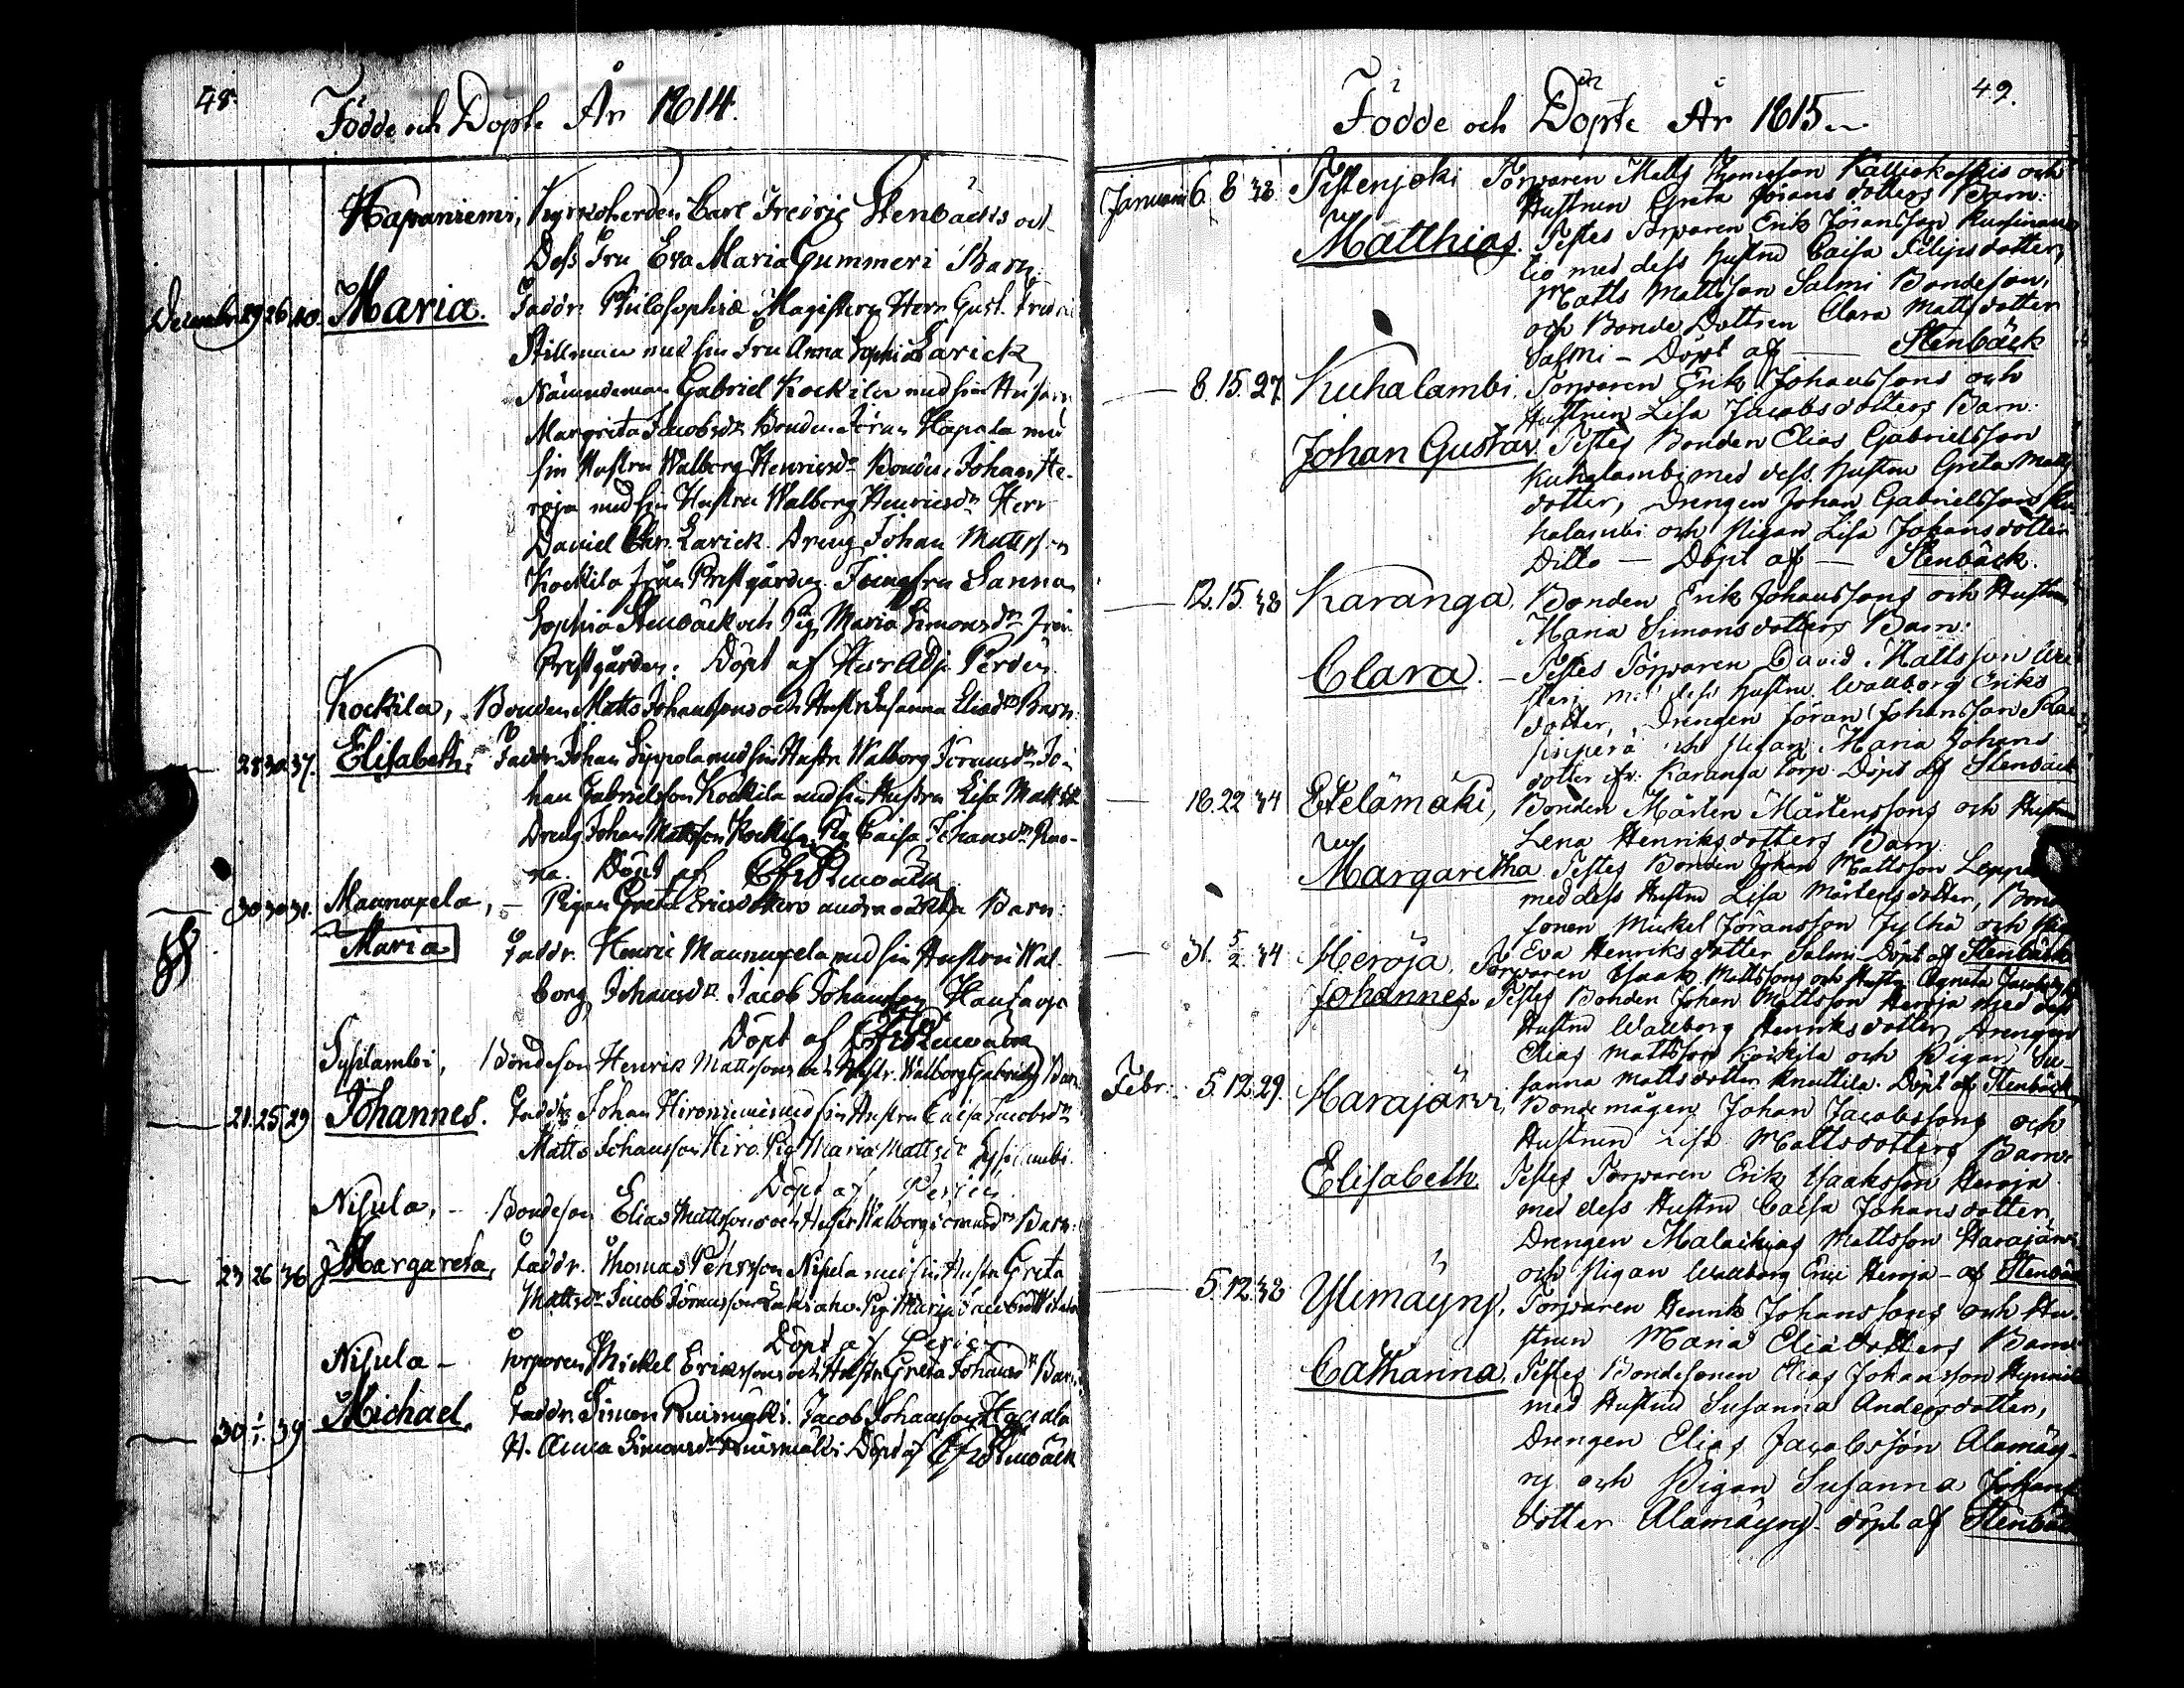 48.
Födde och Döpte År 1814.
Hapaniemi, Kyrkoherden Carl Fredric Stenbäcks och
Dess Fru Eva Maria Gummeri Barn.
Decembr 19 26 40. Maria. Faddr. Philosophiæ Magistern Herr Gust. Fredric
Stillman med sin Fru Anna Sophia Larick
Nämndeman Gabriel Kockila med sin Hustru
Margreta Jacobsdr Bonden Jöran Hapala med
sin Hustru Walborg Henricsdr Bonden Johan He-
roja med sin Hustru Walborg Henricsdr Herr
Daniel Chr. Larick. Dreng Johan Mattsson
Kockila från Prestgården. Jungfru Sanna
Sophia Stenbäck och Pig. Maria Simonsdr från
Prestgården: Döpt af Herr Adj. Perden
Kockila, Bonden Matts Johanssons och Hustr Susanna Eliædr Barn:
28 30 37. Elisabeth: Faddr. Johan Sippola med sin Hustr Walborg Jöransdr Jo-
han Gabrielsson Kockila med sin Hustru Lisa Mattsdr
Dreng Johan Mattsson Kockila, Pig. Caisa Johansdr Ruo-
na. Döpt af CFr Stenbäck
30 30 31. Maunupela, – Pigan Greta Ericsdotters andra oäkta Barn:
Maria Faddr. Henric Maunupela med sin Hustru Wal-
borg Johansdr. Jacob Johansson Hautaoja
Döpt af CFr Stenbäck
Sysilambi, Bondeson Henrik Mattssons och Hustr. Walborg Gabrielsdr Barn
21. 25 29 Johannes. Faddr. Johan Hironiemi med sin Hustru Caisa Jacobsdr
Matts Johansson Hiro. Pig Maria Mattsdr Sysilambi.
Döpt af Perden
Nisula, – Bondeson Elias Mattssons och Hustr Walborg Jöransdr Barn:
23 26 36 Margareta, Faddr. Thomas Pehrsson Nisula med sin Hustru Greta
Mattsdr Jacob Jöransson Pig Maria Jacobsdr
Döpt af Perden
Nisula – Torparen Mickel Erikssons och Hustr Greta Johansdr Barn.
30 1/1. 39 Michael. Faddr. Simon Ruismäki. Jacob Johansson Hapala
H. Anna Simonsdr Ruismäki Döpt af CFr Stenbäck
49.
Födde och Döpte År 1815.
Januari 6. 8 38. Pistenjoki Torparen Matts Thomsson Kalliokoskis och
Hustrun Greta Jörans dotters Barn:
Matthias. Testes Torparen Erik Jöransson
lio med dess hustru Caisa Filipsdotter,
Matts Mattsson Salmi Bondeson,
och Bonde Dottren Clara Mattsdotter
Salmi – Döpt af — Stenbäck
8. 15. 27. Kuhalambi. Torparen Erik Johanssons och
Hustrun Lisa Jacobsdotters Barn:
Johan Gustav Testes Bonden Elias Gabrielsson
Kuhalambi med dess hustru Greta Matts
dotter, Drengen Johan Gabrielsson Ku
halambi och Pigan Lisa Johansdotter
Ditto — Döpt af — Stenbäck.
12. 15. 38 Karanga, Bonden Erik Johanssons och Hustru
Maria Simonsdotters Barn:
Clara. – Testes Torparen David Mattsson
med dess hustru Wallborg Eriks
dotter, Drengen Jöran Johansson
och Pigan Maria Johans
dotter ifr: Karanga Torp: Döpt af Stenbäck
18. 22 34 Etelämäki, Bonden Mårten Mårtenssons och Hustru
Lena Henriksdotters Barn
Margaretha Testes Bonden Johan Mattsson
med dess Hustru Lisa Mårtensdotter, Bonde
sonen Mickel Jöransson Jylhä och Pig
Eva Henriksdotter Salmi Döpt af Stenbäck
31. 5/2 34 Heroja. Torparen Isaak Mattssons och Hustru Agneta
Johannes. Testes Bonden Johan Mattsson Heroja med dess
Hustru Wallborg Henriksdotter, Drengen
Elias Mattsson Kockila och Pigan Su-
sanna Mattsdotter Knuttila. Döpt af Stenbäck
Febr: 5. 12. 29. Harajärvi, Bondemågen Johan Jacobssons och
Hustrun Lisa Mattsdotters Barn:
Elisabeth Testes Torparen Erik Isaaksson Heroja
med dess Hustru Caisa Johansdotter,
Drengen Malachias Mattsson Harajärvi,
och Pigan Wallborg Eric Heroja – af Stenbäck
5. 12. 38 Ylimäyry, Torparen Henrik Johanssons och Hu-
strun Maria Eliædotters Barn
Catharina, Testes Bondesonen Elias Johansson
med Hustrun Susanna Andersdotter,
Drengen Elias Jacobsson Alamäy-
ry och Pigan Susanna Johans
dotter Alamäyry. döpt af Stenbäck